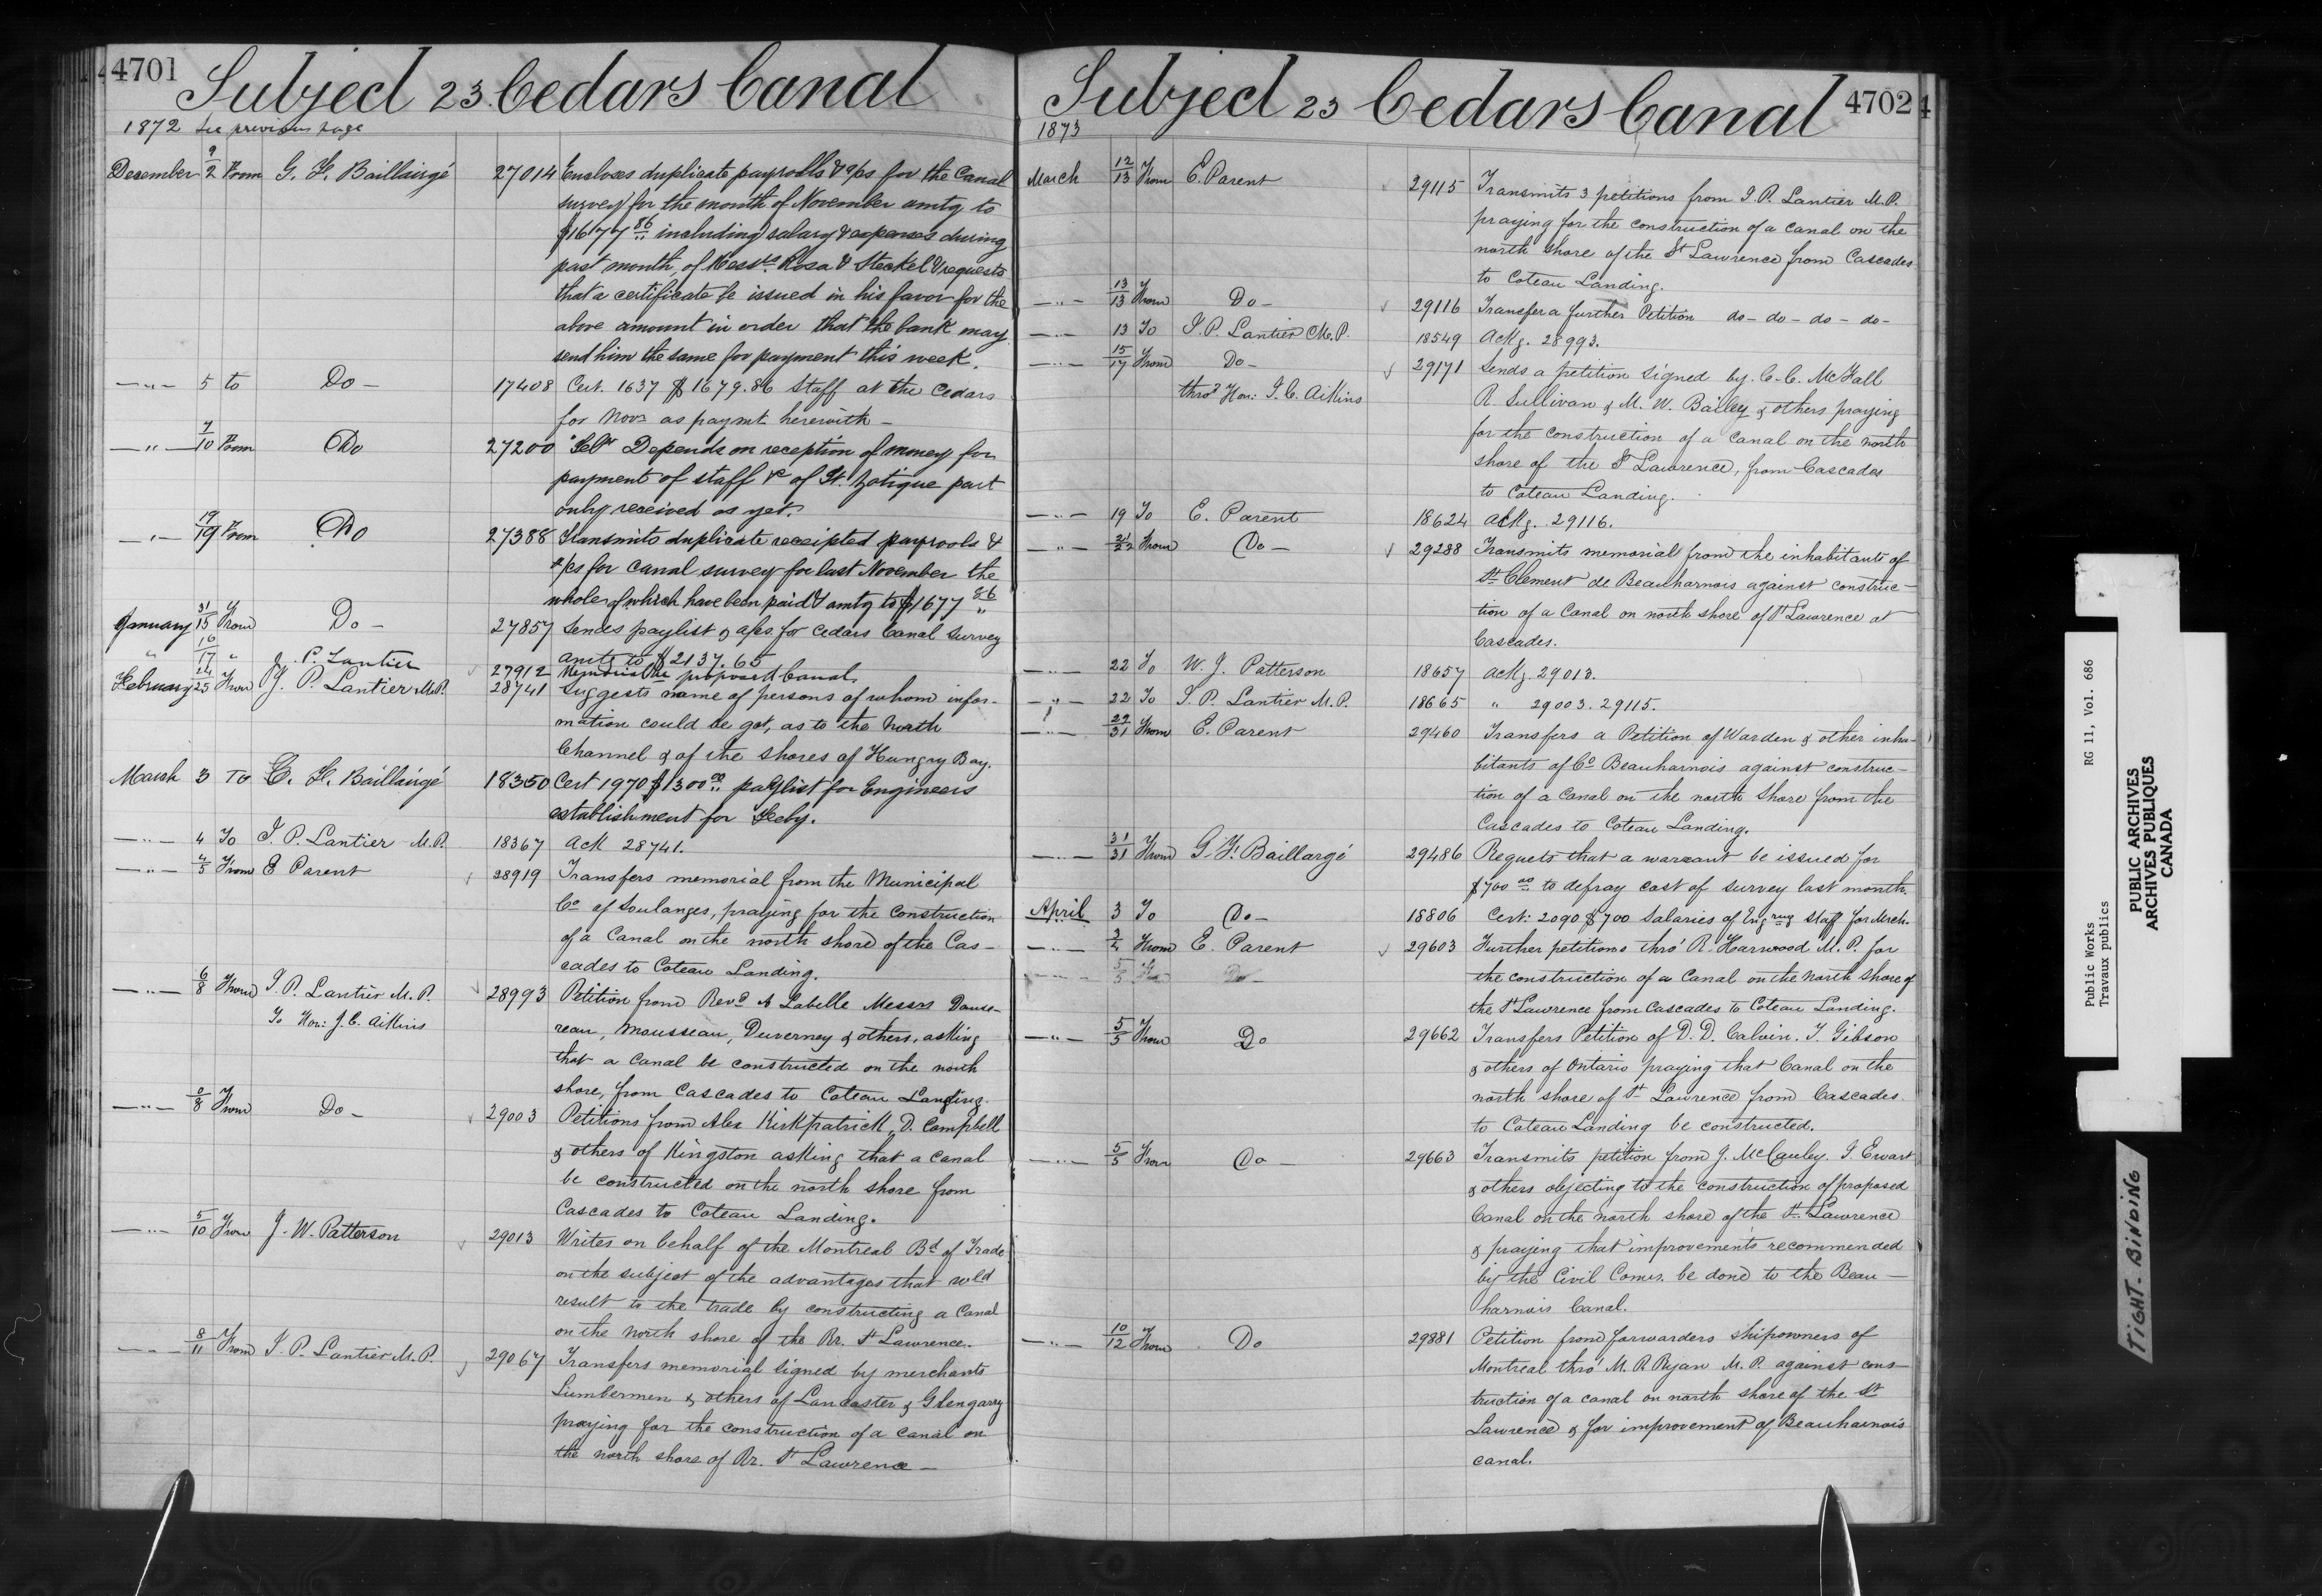 4701
Subject 23 Cedars Canal
1872 See previous page
December 9/2 From G. F. Baillairgé 27014 Encloses duplicate payrolls & a/cs for the Canal
survey for the month of November amtg to
$1677 86 including salary & expenses during
past month, of Messrs. Rosa & Steckel & requests
that a certificate be issued in his favor for the
above amount in order that the bank may
send him the same for payment this week.
—"— 5 to Do — 17408 Cert. 1637 $1679.86 Staff at the Cedars
for Novr as paymt herewith —
—"— 7/10 From Do 27200 Telr Depends on reception of money for
payment of staff &c of St. Zotique part
only received as yet.
—"— 19/19 From Do 27388 Transmits duplicate receipted payrools &
a/cs for canal survey for last November the
whole of which have been paid & amtg to $1677 86
January 31/15 From Do — 27857 Sends paylist & a/cs for Cedars Canal Survey
amtg to $2137.65
" 16/17 " J. P. Lantier 27912 Memorial re proposed Canal
February 24/25 From J. P. Lantier M.P. 28741 Suggests name of persons of whom infor-
mation could be got, as to the North
Channel & of the shores of Hungry Bay.
March 3 To G. F. Baillairgé 18350 Cert 1970 $1300 00 paylist for Engineers
establishment for Feby.
—"— 4 To J. P. Lantier M.P. 18367 Ack 28741.
—"— 4/5 From E Parent 28919 Transfers memorial from the Municipal
Co of Soulanges, praying for the Construction
of a Canal on the north shore of the Cas-
cades to Coteau Landing.
—"— 6/8 From J. P. Lantier M.P. 28993 Petition from Revd A Labelle Messrs Danse-
To Hon: J. C. Aikins
reau, Mousseau, Duverney & others, asking
that a Canal be constructed on the north
shore, from Cascades to Coteau Landing.
—"— 8/8 From Do — 29003 Petitions from Alex Kirkpatrick, D. Campbell
& others of Kingston asking that a Canal
be constructed on the north shore from
Cascades to Coteau Landing.
—"— 5/10 From J. W. Patterson 29013 Writes on behalf of the Montreal Bd of Trade
on the subject of the advantages that wld
result to the trade by constructing a Canal
on the north shore of the Rr. St Lawrence.
—"— 8/11 From J. P. Lantier M.P. 29067 Transfers memorial signed by merchants
Lumbermen & others of Lancaster & Glengarry
praying for the construction of a canal on
the north shore of Rr. St Lawrence —
4702
Subject 23 Cedars Canal
1873
March 12/13 From E. Parent 29115 Transmits 3 petitions from J. P. Lantier M.P.
praying for the construction of a canal on the
north shore of the St Lawrence from Cascades
to Coteau Landing.
—"— 13/13 From Do — 29116 Transfer a further Petition do - do - do - do -
—"— 13 To J. P. Lantier M.P. 18549 Ackg. 28993.
—"— 15/17 From Do — 29171 Sends a petition signed by C. C. McFall
thro' Hon: J. C. Aikins
R. Sullivan & M. W. Bailey & others praying
for the construction of a Canal on the north
shore of the St Lawrence, from Cascades
to Coteau Landing.
—"— 19 To E. Parent 18624 Ackg. 29116.
—"— 21/22 From Do — 29288 Transmits memorial from the inhabitants of
St Clement de Beauharnois against construc-
tion of a Canal on north shore of St Lawrence at
Cascades.
—"— 22 To W. J. Patterson 18657 Ackg. 29013.
—"— 22 To J. P. Lantier M.P. 18665 " 29003. 29115.
—"— 29/31 From E. Parent 29460 Transfers a Petition of Warden & other inha-
bitants of Co Beauharnois against construc-
tion of a Canal on the north Shore from the
Cascades to Coteau Landing.
—"— 31/31 From G. F. Baillargé 29486 Requets that a warrant be issued for
$700 00 to defray cost of survey last month.
April 3 To Do — 18806 Cert: 2090 $700 Salaries of Engring Staff for March.
—"— 3/4 From E. Parent 29603 Further petitions thro' R. Harwood M.P. for
the construction of a Canal on the North Shore of
the St Lawrence from Cascades to Coteau Landing.
—"— 5/5 From Do 29662 Transfers Petition of D. D. Calvin. J. Gibson
& others of Ontario praying that Canal on the
north shore of St Lawrence from Cascades
to Coteau Landing be constructed.
—"— 5/5 From Do — 29663 Transmits petition from J. McCauley. J. Ewart
& others objecting to the construction of proposed
Canal on the north shore of the St. Lawrence
& praying that improvements recommended
by the Civil Comrs. be done to the Beau-
harnois Canal.
—"— 10/12 From Do 29881 Petition from forwarders shipowners of
Montreal thro' M. P. Ryan M.P. against cons-
truction of a canal on north shore of the St
Lawrence & for improvement of Beauharnois
canal.
Public Works RG 11, Vol. 686
Travaux publics
PUBLIC ARCHIVES
ARCHIVES PUBLIQUES
CANADA
TIGHT BINDING